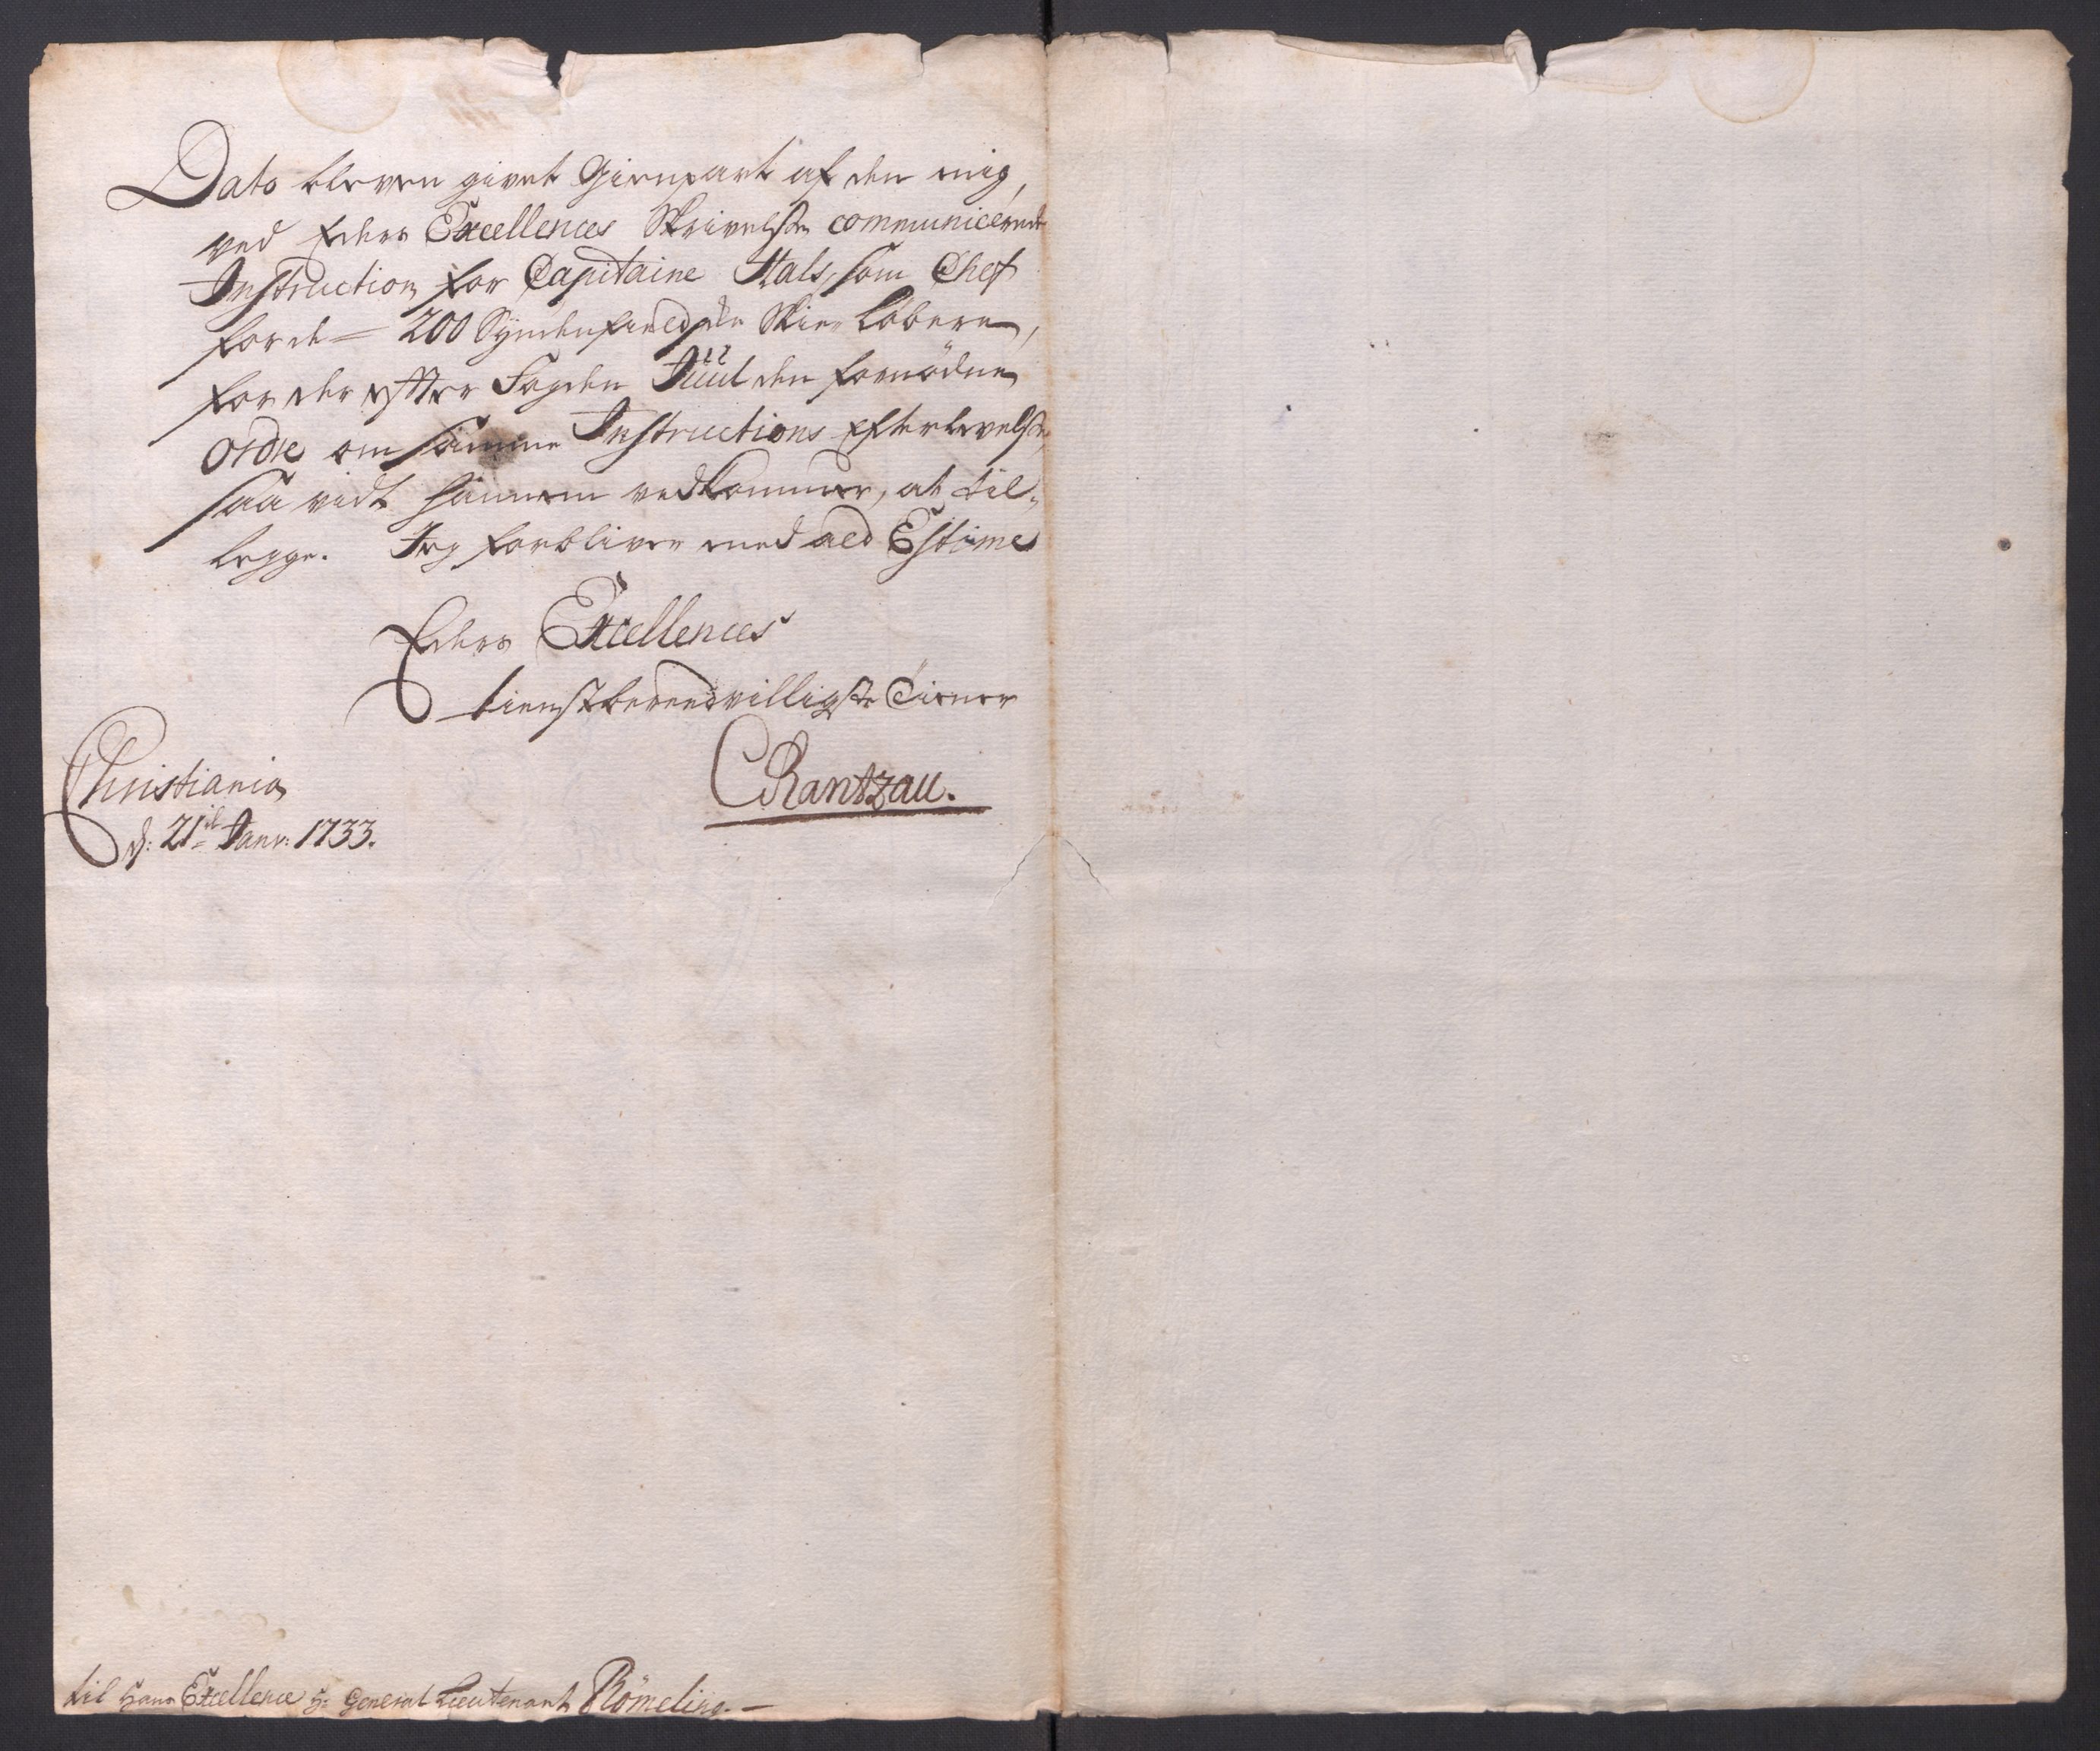 Dato bleven givet Gienpart af den mig,
ved Eders Excellences Skrivelse communicerede
Instruction for Capitaine Stals, som Chef
for de 200 Syndenfieldske Skie-Löbere,
for der efter Fogden Jüül den fornödne
ordre om samme Instructions Efterlevelse,
saa vidt hannem vedkommer, at til-
legge. Jeg forbliver med ald Estime
Eders Excellences
tienstbereedvilligste Tiener
CRantzau.
Christiania
d: 21 Janv: 1733.
til Hans Excellence Hr General Lieutenant Römeling.